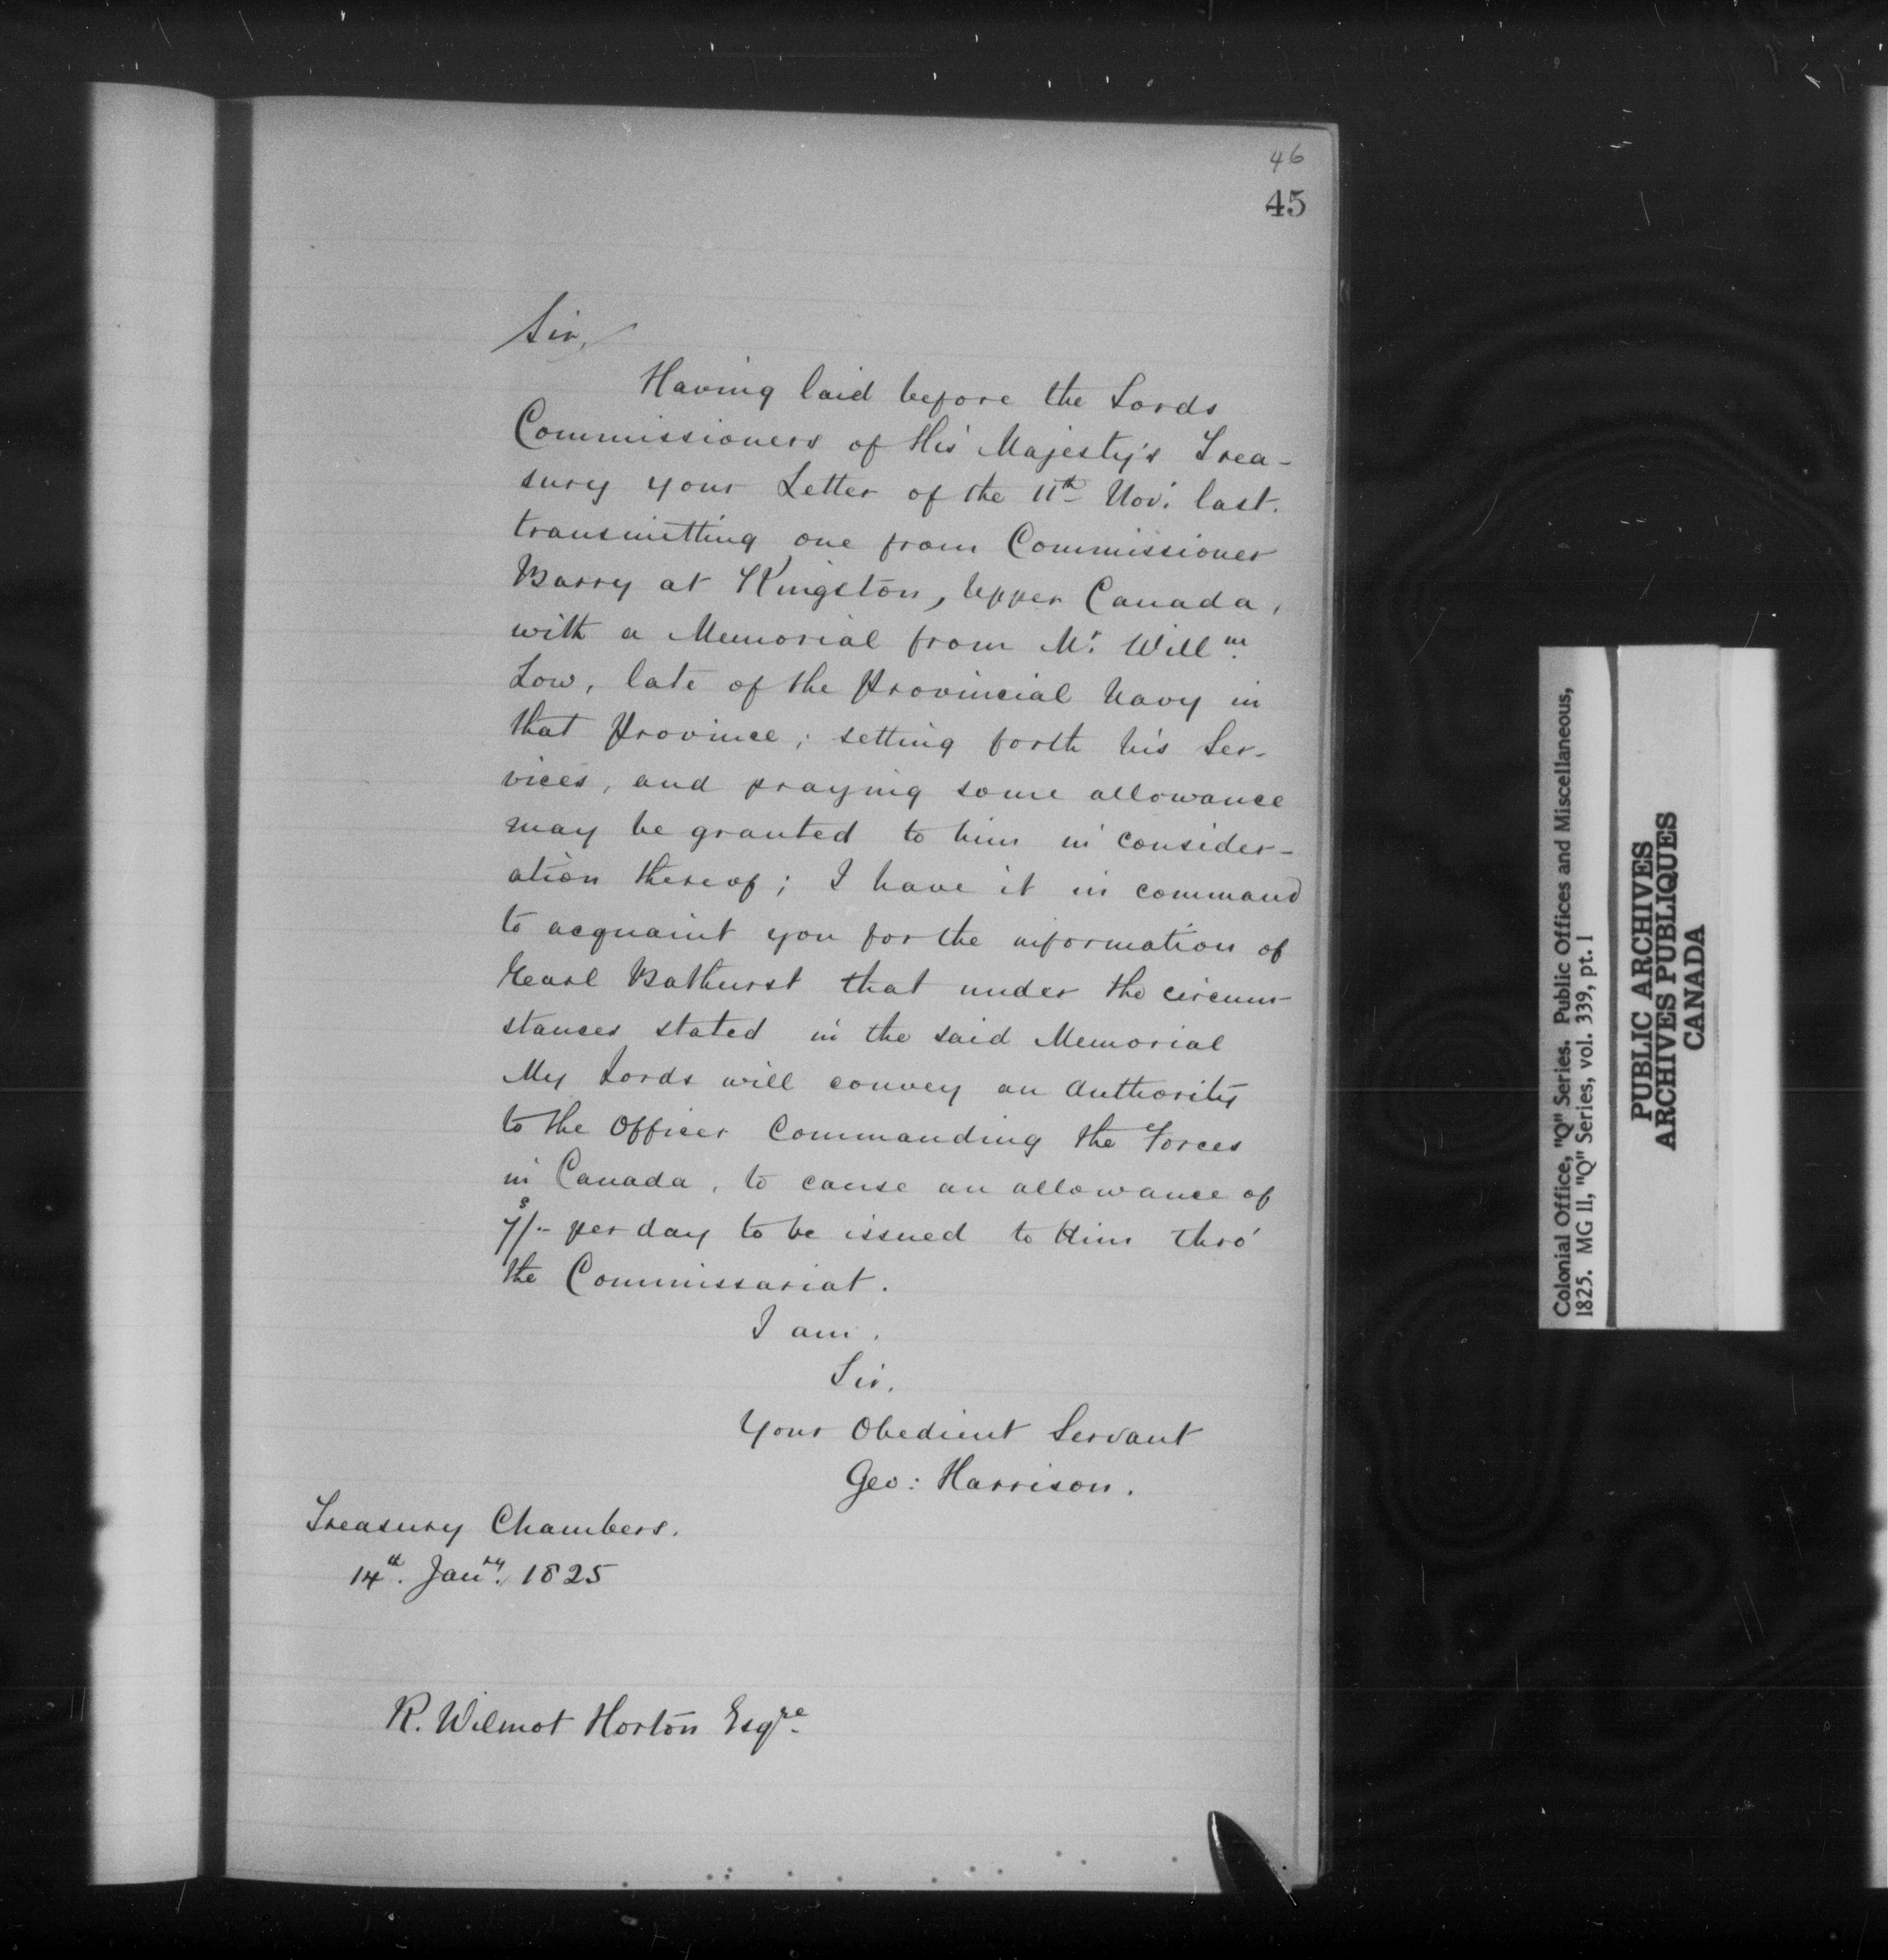 46
45
Sir,
Having laid before the Lords
Commissioners of His Majesty's Trea-
sury your Letter of the 11th Nov. last.
transmitting one from Commissioner
Barry at Kingston, Upper Canada,
with a Memorial from Mr. Willm.
Low, late of the Provincial Navy in
that Province; setting forth his Ser-
vices, and praying some allowance
may be granted to him in consider-
ation thereof; I have it in command
to acquaint you for the information of
Earl Bathurst that under the circum-
stances stated in the said Memorial
My Lords will convey an authority
to the Officer Commanding the Forces
in Canada, to cause an allowance of
per day to be issued to Him thro'
the Commissariat.
I am.
Sir.
Your Obedient Servant
Geo: Harrison.
Treasury Chambers.
14th. Jany. 1825
R. Wilmot Horton Esqre.
Colonial Office, "Q" Series. Public Offices and Miscellaneous,
1825. MG 11, "Q" Series, vol. 339, pt. 1
PUBLIC ARCHIVES
ARCHIVES PUBLIQUES
CANADA